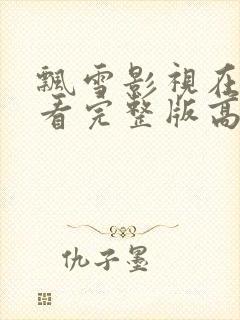 飄雪影視在
看完整版高
仇子墨